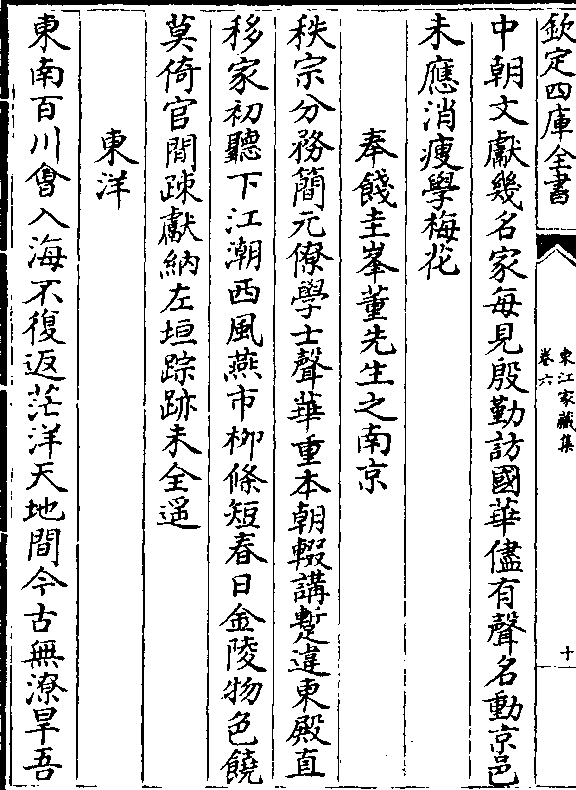 欽定四庫全書
東江家藏集
卷六
十
中朝文獻幾名家每見殷勤訪國華儘有聲名動京邑
未應消瘦學梅花
奉餞圭峯董先生之南京
秩宗分務簡元僚學士聲華重本朝輟講蹔違東殿直
移家初聽下江潮西風燕市柳條短春日金陵物色饒
莫倚官閒踈獻納左垣踪跡未全遥
東洋
東南百川會入海不復返茫洋天地間今古無潦旱吾